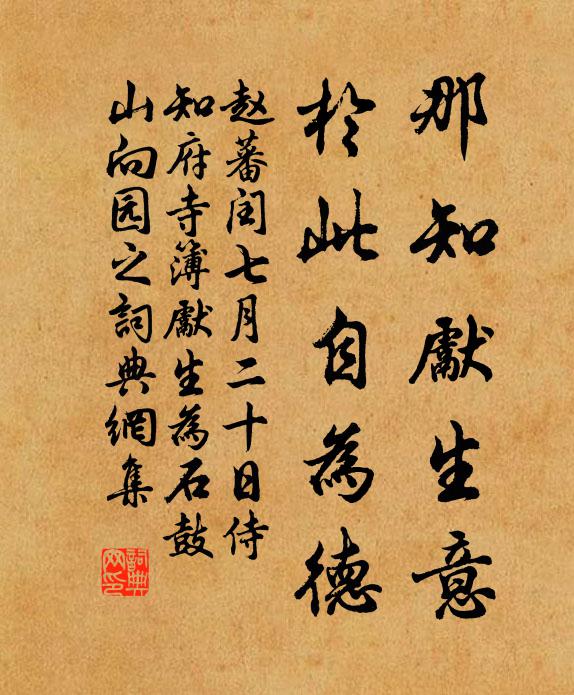 那知獻生意
於此自為德
赵蕃闰七月二十日侍
知府寺簿獻生為石鼓
山向园之詞典網集
詞典
网印